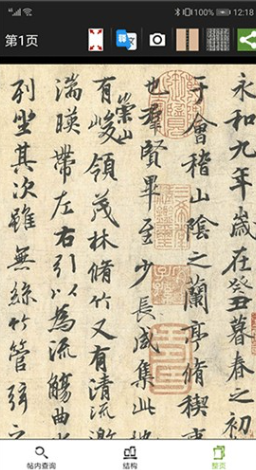 100% 12:18
第1页
永和九年歲在癸丑暮春之初
于會稽山陰之蘭亭脩稧事
也群賢畢至少長咸集此地
崇山
有峻領茂林脩竹又有清流激
湍暎帶左右引以為流觴曲
列坐其次雖無絲竹管弦之
帖内查询
结构
整页